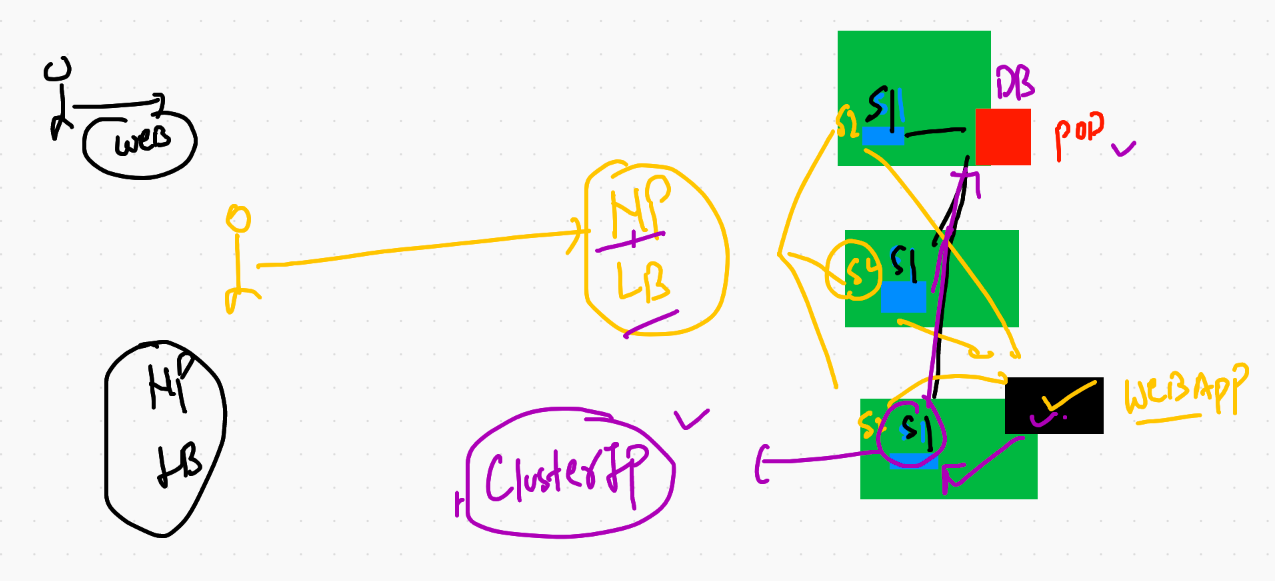 WEB
NP
LB
NP
LB
ClusterIP
DB
POD
S2
S1
S4
S1
S1
WEBAPP